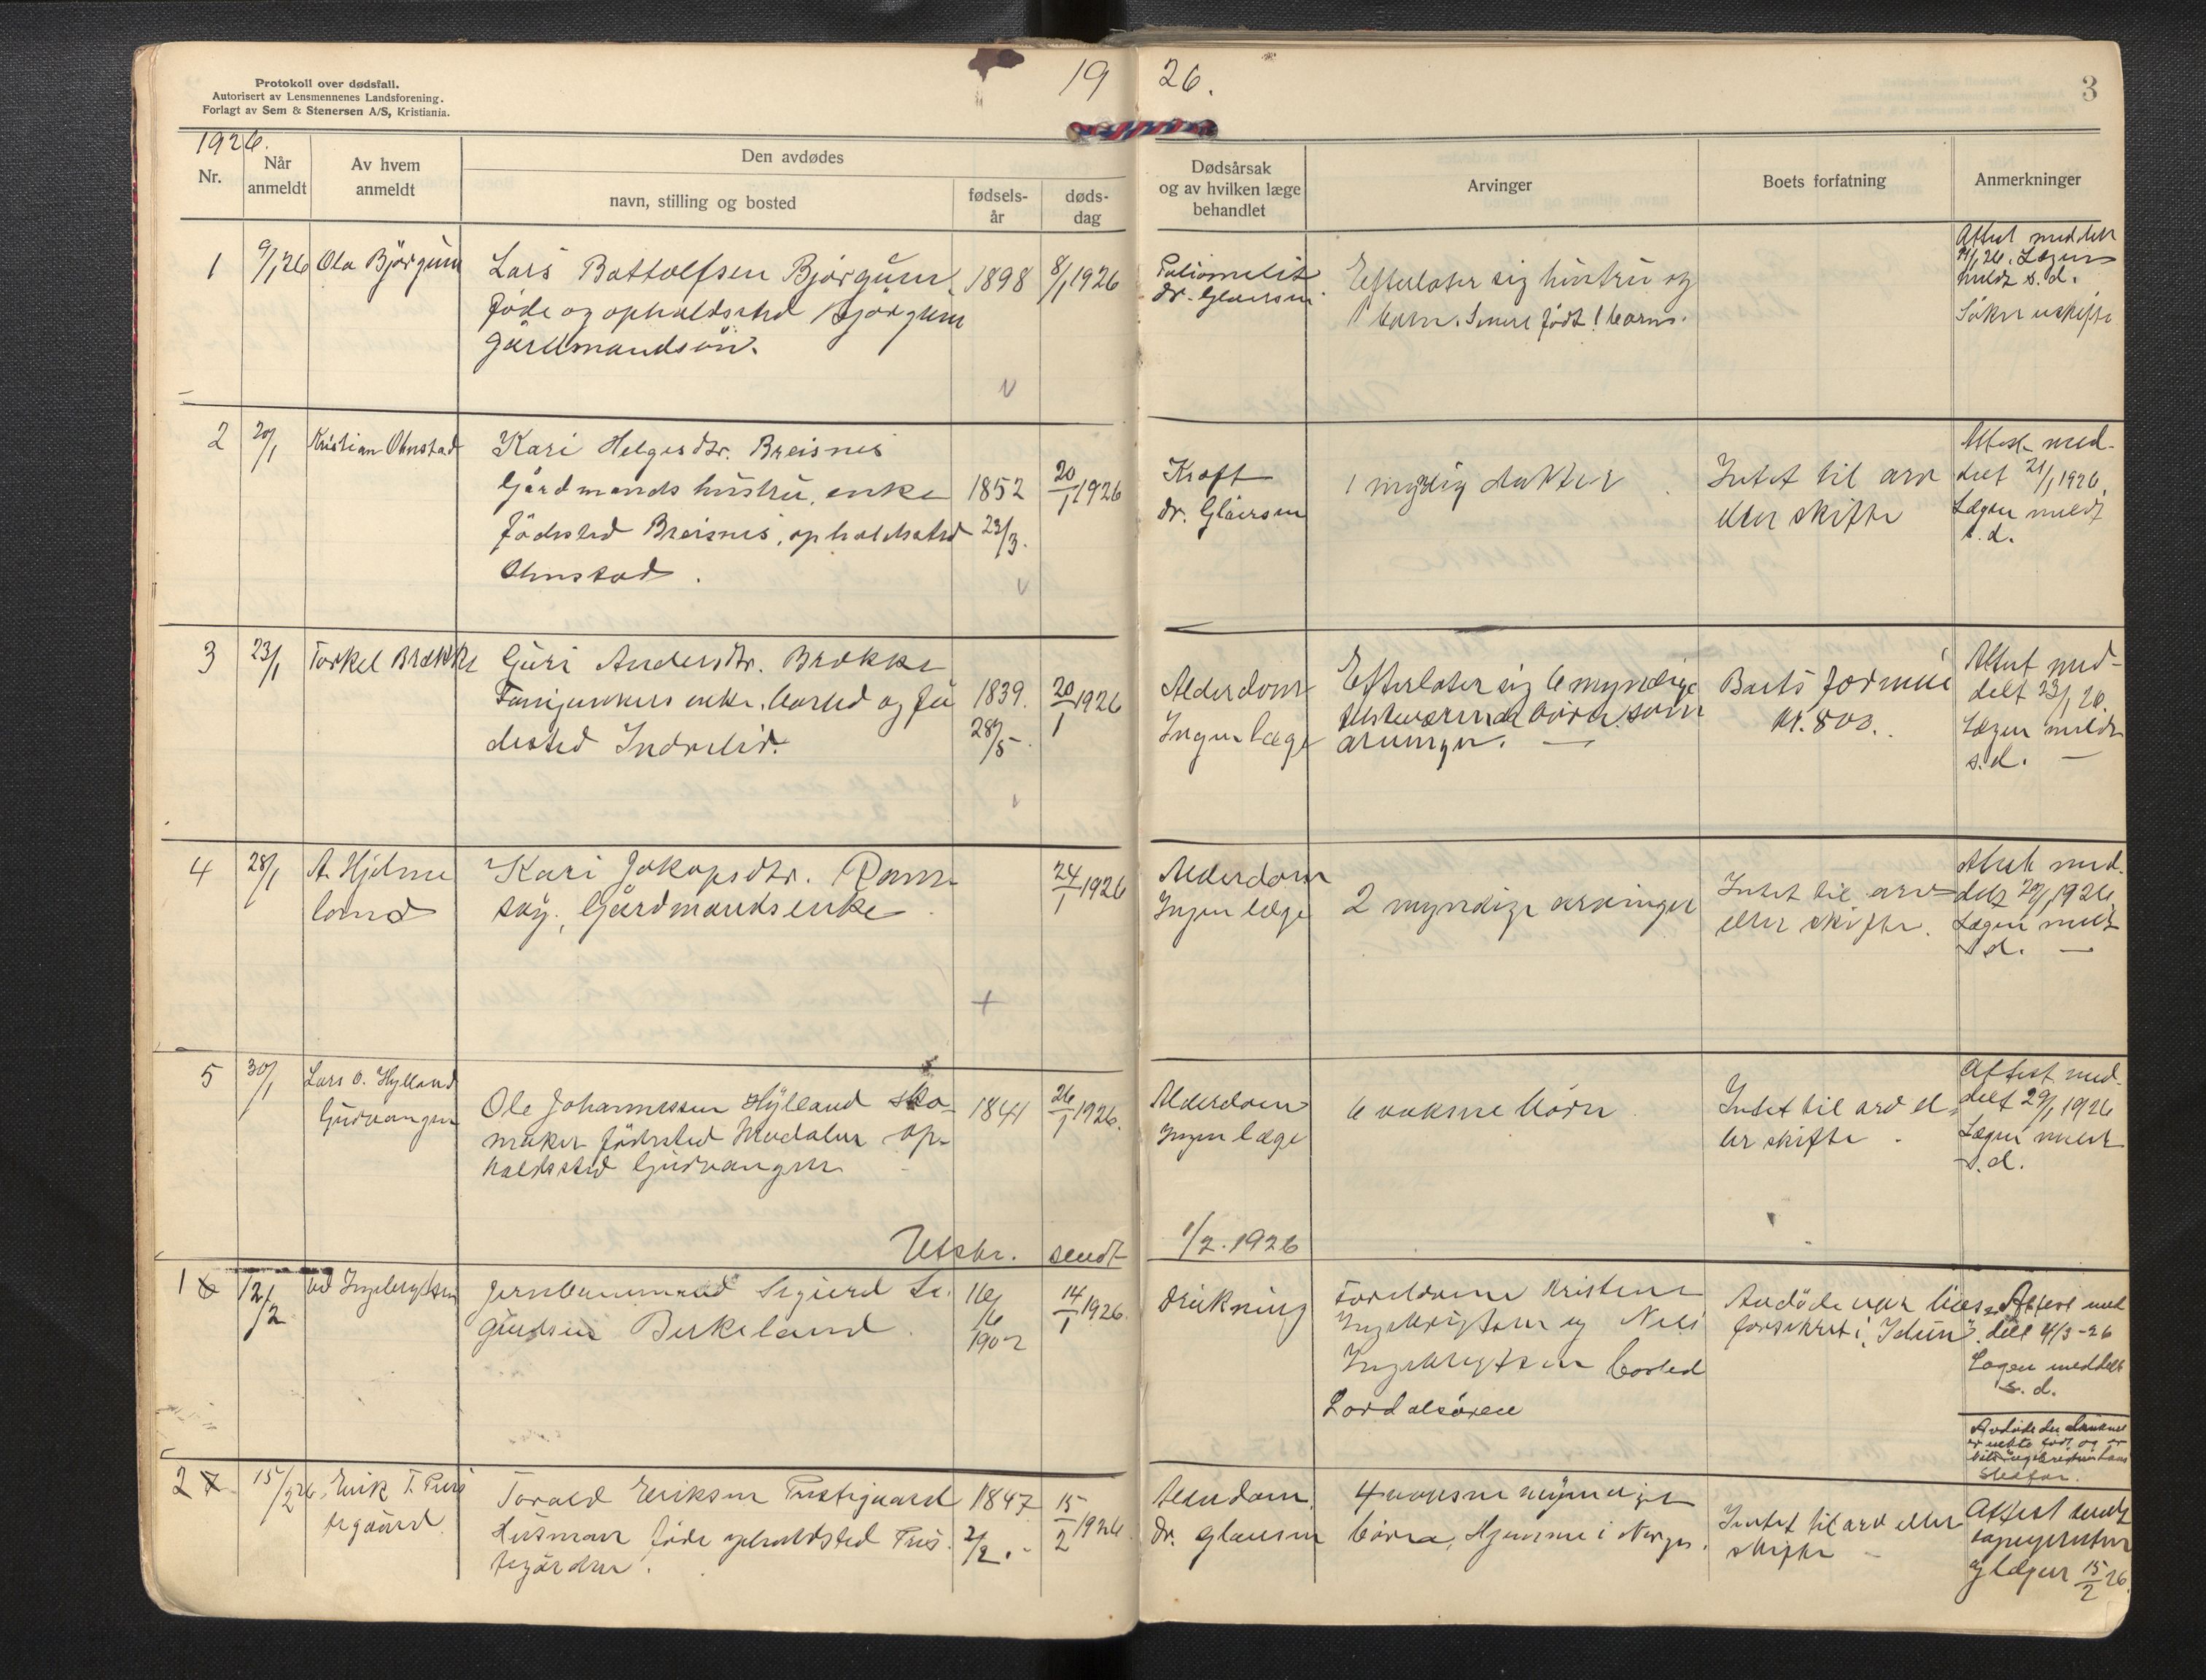 Protokoll over dødsfall.
Autorisert av Lensmennenes Landsforening.
Forlagt av Sem & Stenersen A/S, Kristiania.
19
26.
3
1926.
Nr.
Når
anmeldt
Av hvem
anmeldt
Den avdødes
navn, stilling og bosted
fødsels-
år
døds-
dag
Dødsårsak
og av hvilken læge
behandlet
Arvinger
Boets forfatning
Anmerkninger
1
9/1 26
Ola Bjørgum
Lars Bottolfsen Bjørgum
føde og opholdssted Bjørgum
gårdmandsøn.
1898
8/1 1926
dr. Glaersen
Efterlater sig hustru og
1 barn. Senere født 1 barn.
Attest meddelt
s. d.
Søker uskifte
2
20/1
Kristian Ohnstad
Kari Helgesdtr. Breisnes
Gårdmands hustru, enke
fødested Breisnes, opholdssted
Ohnstad.
1852
23/3.
20/1 1926
Kræft
dr. Glaersen
1 myndig datter
Intet til arv
eller skifte
Attest med-
delt 21/1 1926.
Lægen meldt
s. d.
3
23/1
Torkel Brække
Guri Andersdtr. Brække
enke, bosted og fø
dested Indrelid.
1839.
28/5
20/1 1926
Alderdom
Ingen læge
Efterlater sig 6 myndige
tilstedeværende børn som
arvinger. —
Boets formue
kr. 800.
Attest med-
delt 23/1 26.
Lægen meldt
s. d. —
4
28/1
A. Hjelme
land
Kari Jakopsdtr. Ram
søy, Gårdmandsenke
24/1 1926
Alderdom
Ingen læge
2 myndige arvinger
Intet til arv
eller skifte.
Attest med-
delt 29/1 1926
Lægen meldt
s. d. —
5
30/1
Lars O. Hylland
Gudvangen
Ole Johannessen Hylland sko-
maker fødested op-
holdssted Gudvangen
1841
26/1 1926.
Alderdom
Ingen læge
6 voksne børn
Intet til arv el-
ler skifte.
Attest med-
delt 29/1 1926
Lægen meldt
s. d.
Utskr. sendt
1/2. 1926
1 6
12/2
Ingebrigtsen
Jernbanemand Sigurd Si-
gurdsen Birkeland.
16/6
1902
14/1 1926.
Drukning
Foreldrene Kristine
Ingebrigtsen og Nils
Ingebrigtsen bosted
Lærdalsøren
Avdøde var livs-
forsikret i "Idun".
Attest med
delt 4/3-26
Lægen meddelt
s. d.
Avdøde
2 7
15/2 26
Erik T. Pres
tegaard
Torald Eriksen Prestegaard
Husman føde opholdsted Pres-
tegården.
1847
2/2.
15/2 1926.
Alderdom.
dr. Glaersen
4 voksne myndige
børn, Hjemme i Norge.
Intet til arv eller
skifte
Attest sendt
og lægen 15/2 26.